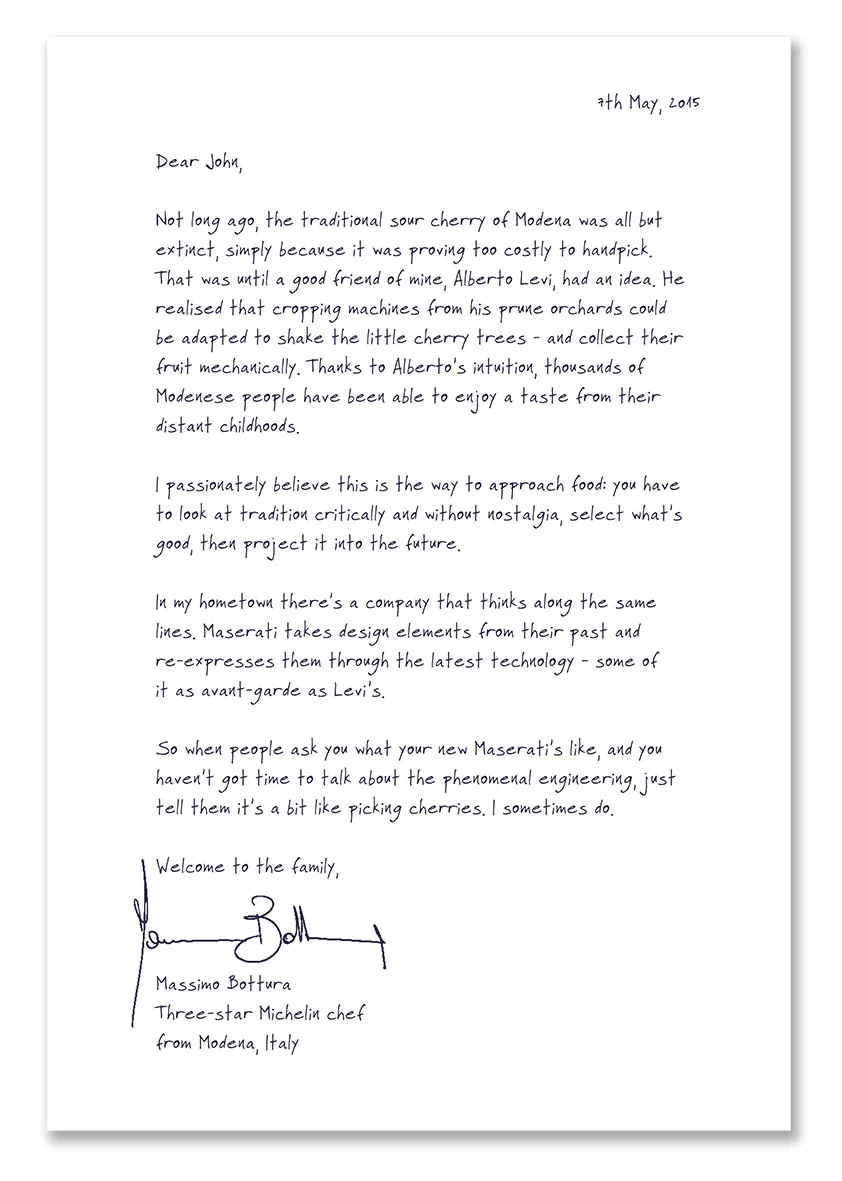 7th May, 2015
Dear John,
Not long ago, the traditional sour cherry of Modena was all but
extinct, simply because it was proving too costly to handpick.
That was until a good friend of mine, Alberto Levi, had an idea. He
realised that cropping machines from his prune orchards could
be adapted to shake the little cherry trees - and collect their
fruit mechanically. Thanks to Alberto's intuition, thousands of
Modenese people have been able to enjoy a taste from their
distant childhoods.
I passionately believe this is the way to approach food: you have
to look at tradition critically and without nostalgia, select what's
good, then project it into the future.
In my hometown there's a company that thinks along the same
lines. Maserati takes design elements from their past and
re-expresses them through the latest technology - some of
it as avant-garde as Levi's.
So when people ask you what your new Maserati's like, and you
haven't got time to talk about the phenomenal engineering, just
tell them it's a bit like picking cherries. I sometimes do.
Welcome to the family,
Massimo Bottura
Three-star Michelin chef
from Modena, Italy